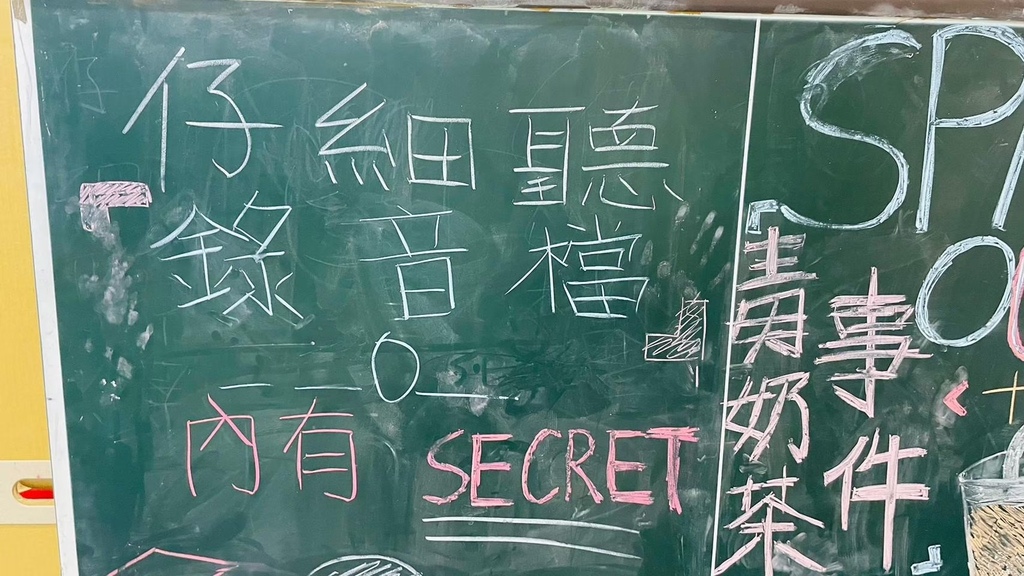 仔細聽
錄音檔
內有 SECRET
SP
O
青奶茶
事件